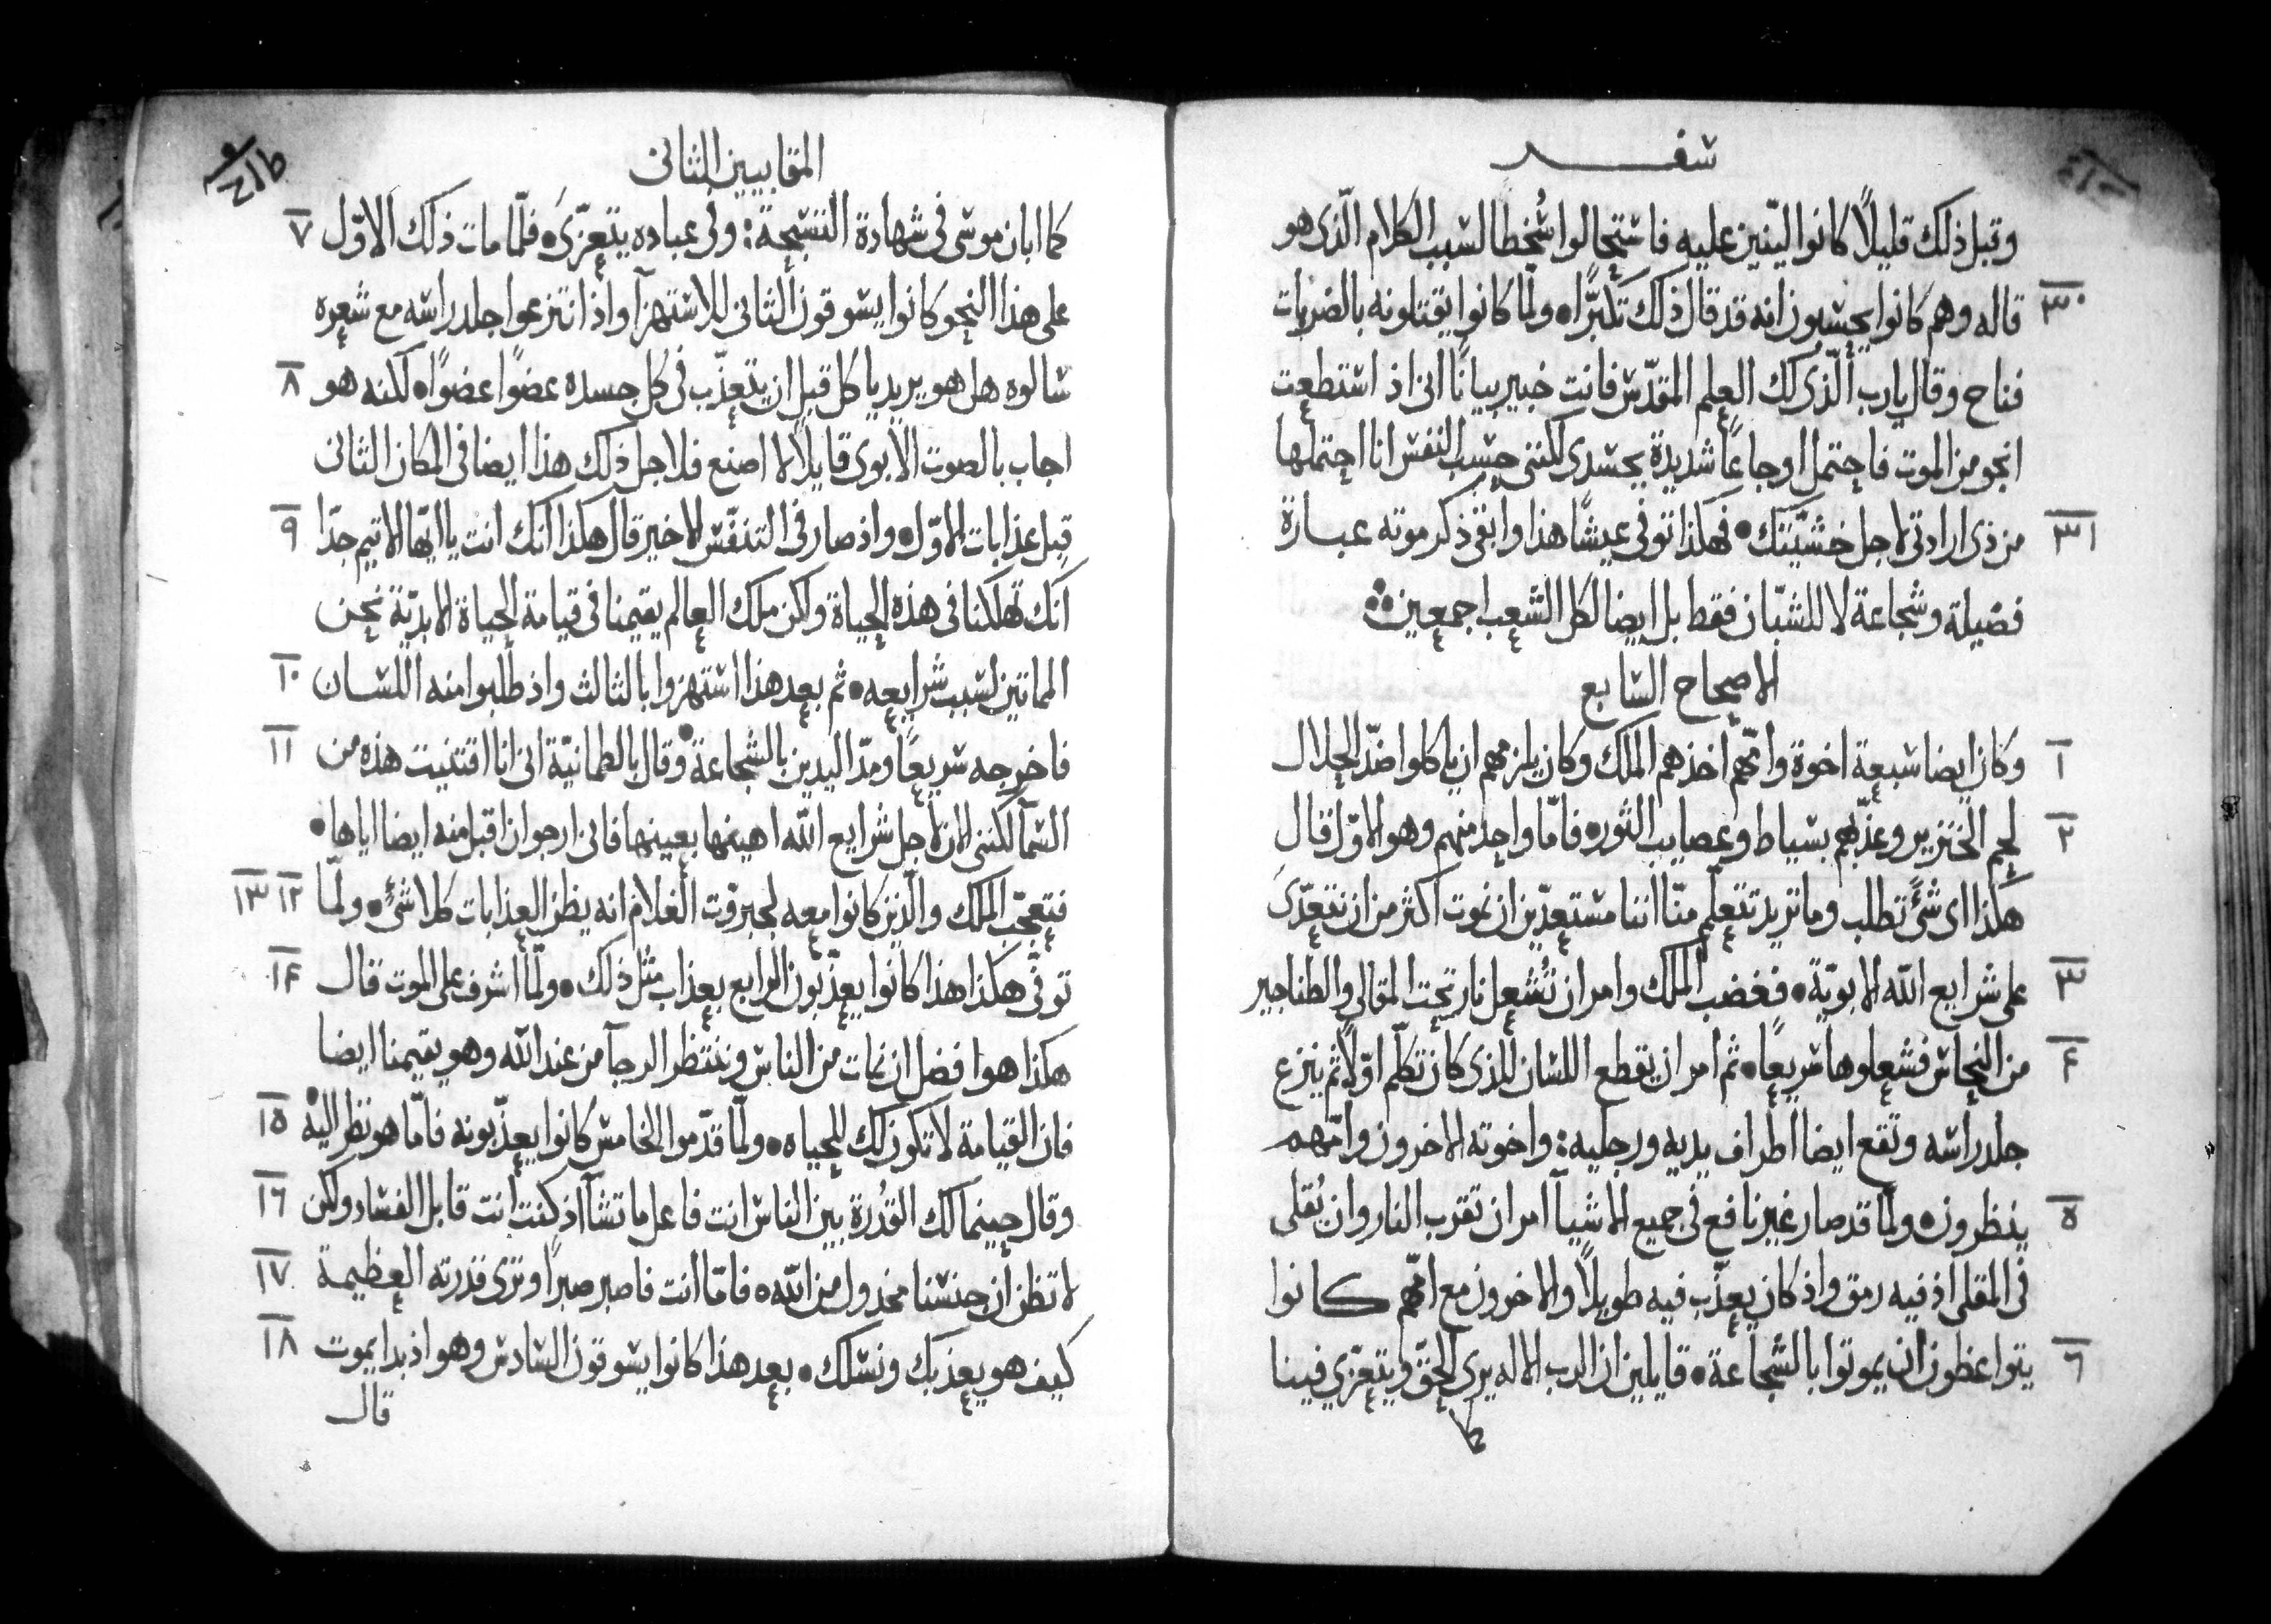 سفر
وقبل ذلك قليلاً كانوا لينين عليه فاستحالوا سُخطا لسبب الكلام الّذي هو
٣٠ قاله وهم كانوا يحسبون انه قد قال ذلك تكبّرًا• ولمّا كانوا يقتلونه بالضربات
فناح وقال يارب الّذي لك العلم المقدّس فانت خبير بيانًا اني اذ استطعت
انجو من الموت فاحتمل اوجاعًا شديدة بجسدي لكنني حسب النفس انا احتملها
٣١ من ذي ارادتي لاجل خشيّتك• فهكذا توفي عيشًا هذا وابقى ذكر موته عبارة
فضيلة وشجاعة لا للشبّان فقط بل ايضا لكل الشعب اجمعين
الاصحاح السابع
١ وكان ايضا سبعة اخوة وامّهم اخذهم الملك وكان يلزمهم ان ياكلوا ضدّ الحلال
٢ لحم الخنزير وعذّبهم بسياط وعصايب الثوره فامّا واحد منهم وهو الاوّل قال
هكذا اي شيءً تطلب وما تريد تتعلّم منّا اننا مستعدّين ان نموت اكثر من ان نتعدّى
٣ على شرايع الله الابويّة• فغضب الملك وامر ان تُشعل نار تحت المقالي والطناجير
۴ من النحاس فشعلوها سريعًا• ثم امر ان يقطع اللسان للذي كان تكلّم اوّلاً ثم ينزع
جلد راسه وتقع ايضا اطراف يديه ورجليه: واخوته الاخرون وامّهم
٥ ينظرون• ولمّا قد صار غير نافع في جميع الاشيآ امر ان تقرب النار وان يُقلى
في المقلى اذ فيه رمق واذ كان يعذّب فيه طويلاً والاخرون مع امّهم كانوا
٦ يتواعظون ان يموتوا بالشجاعة• قايلين ان الرب الاله يرى الحقّ ويتعزّي فينا
كما
المقابيين الثاني
كما ابان موسى في شهادة التسبحة: وفي عباده يتعزّى• فلمّا مات ذلك الاوّل ٧
على هذا النحو كانوا يسوقون الثاني للاستهزآ واذ انتزعوا جلد راسه مع شعره
سالوه هل هو يريد ياكل قبل ان يتعذّب في كل جسده عضوًا عضوًا• لكنه هو ٨
اجاب بالصوت الابوي قايلاً لا اصنع فلاجل ذلك هذا ايضا في المكان الثاني
قبل عذابات الاوّل• واذ صار في التنفّس الاخير قال هكذا انك انت يا ايّها الاثيم جدّا ٩
انك تهلكنا في هذه الحياة ولكن ملك العالم يقيمنا في قيامة الحياة الابديّة نحن
الماتين لسبب شرايعه• ثم بعد هذا استهزوا بالثالث واذ طلبوا منه اللسان ١٠
فاخرجه سريعًا ومدّ اليدين بالشجاعة• وقال بالطمانيّة اني انا اقتنيت هذه من ١١
السمآ لكنني الان لاجل شرايع الله اهينها بعينها فاني ارجو ان اقبل منه ايضا اياها•
فتعجّب الملك والّذين كانوا معه لجبروت الغلام انه يظن العذابات كلا شيءٍ• ولمّا ١٢ ١٣
توفّي هكذا هذا كانوا يعذّبون الرابع بعذاب مثل ذلك• ولمّا اشرف على الموت قال ١۴
هكذا هو افضل ان نمات من الناس وننتظر الرجآ من عند الله وهو يقيمنا ايضا
فان القيامة لا تكون لك للحياه• ولمّا قدّموا الخامس كانوا يعذّبونه فامّا هو نظر اليه• ١٥
وقال حينما لك القُدرة بين الناس انت فاعل ما تشآ اذ كنت انت قابل الفساد ولكن ١٦
لا تظن ان جنسنا مخدول من الله• فامّا انت فاصبر صبرًا وترى قدرته العظيمة ١٧
كيف هو يعذبك ونسلك• بعد هذا كانوا يسوقون السادس وهو اذ بدا يموت ١٨
قال